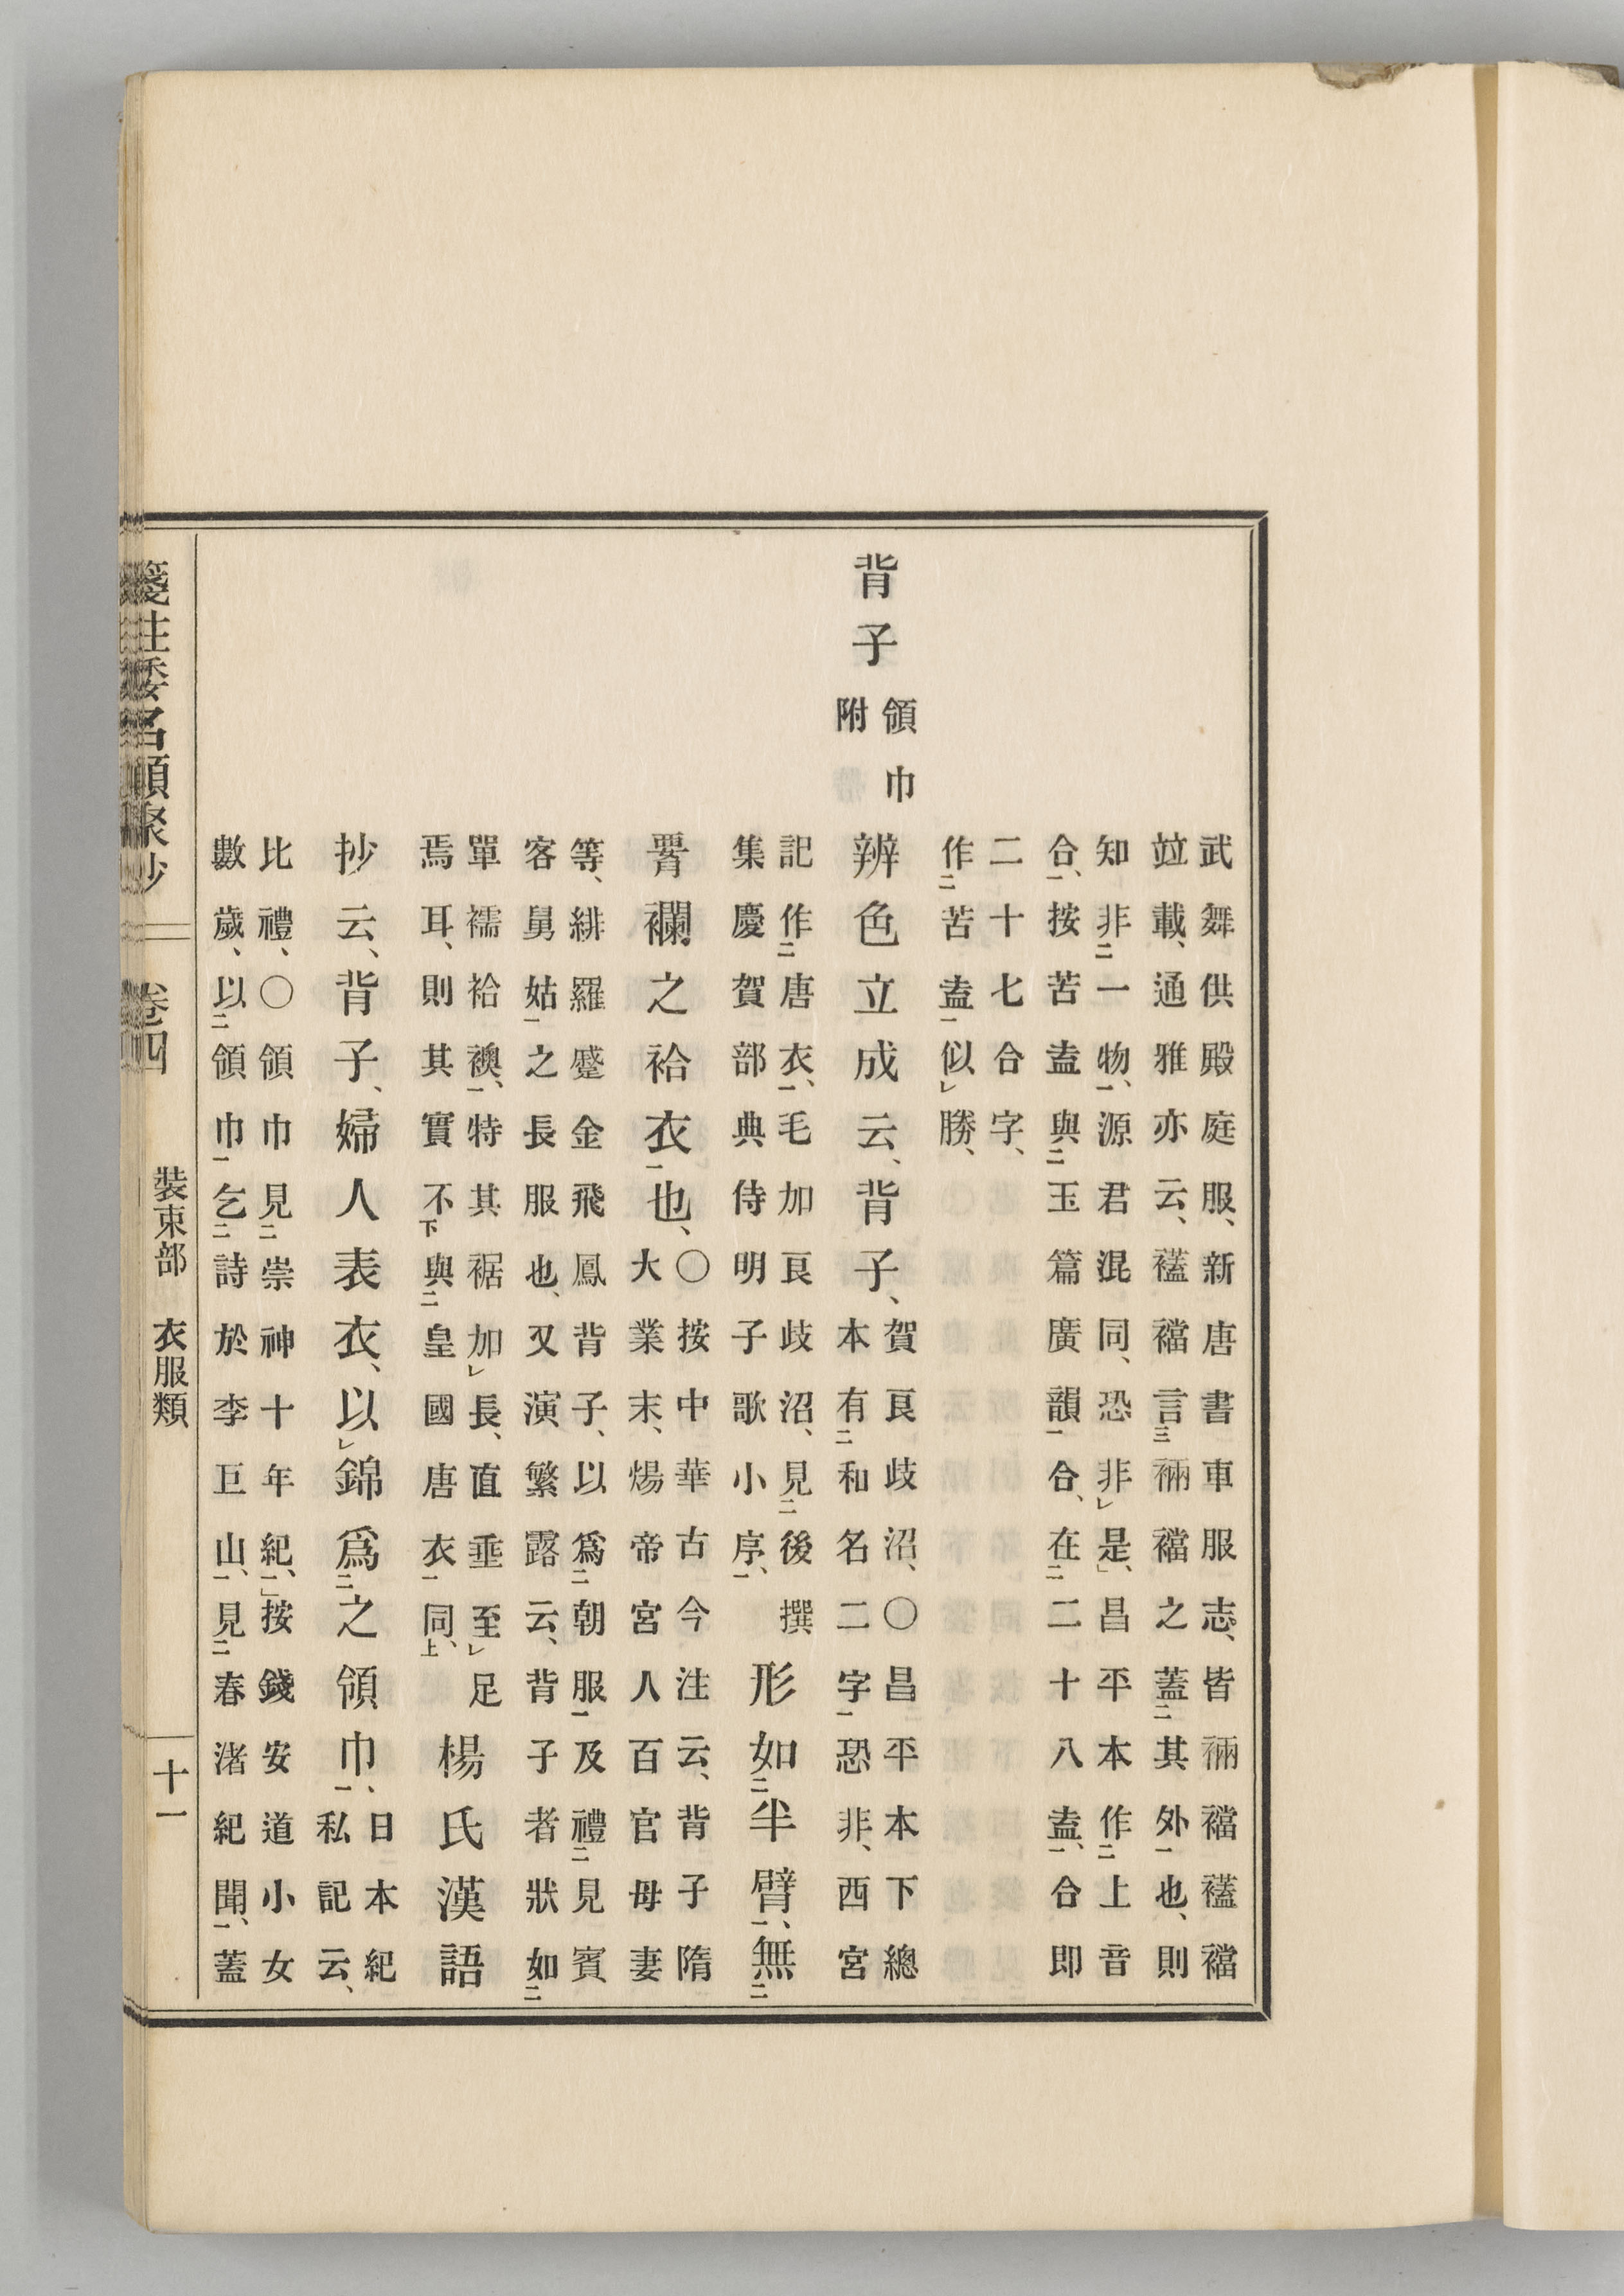 武舞供殿庭服、新唐書車服志、皆裲襠襠
竝載、通雅亦云、襠言三裲襠之蓋二其外一也、則
知非二一物一、源君混同、恐非レ是、昌平本作二上音
合一、按苦盍與二玉篇廣韻一合、在二二十八盍一、合即
二十七合字、
作二苦盍一似レ勝、
背子
領巾
附
辨色立成云、背子、
賀良岐沼、○昌平本下總
本有二和名二字一恐非、西宮
記作二唐衣一、毛加良岐沼、見二後撰
集慶賀部典侍明子歌小序一、
形如二半臂一、無二
腰襴之袷衣一也、
○按中華古今注云、背子隋
大業末、煬帝宮人百官母妻
等、緋羅蹙金飛鳳背子、以爲二朝服一及禮二見賓
客舅姑一之長服也、又演繁露云、背子者狀如二
單襦袷襖一、特其裾加レ長、直垂至レ足
焉耳、則其實不下與二皇國唐衣一同上、
楊氏漢語
抄云、背子、婦人表衣、以レ錦爲二之領巾一、
日本紀
私記云、
比禮、○領巾見二崇神十年紀一、按錢安道小女
數歲、以二領巾一乞二詩於李巨山一、見二春渚紀聞一、蓋
箋注倭名類聚抄 卷四 裝束部 衣服類 十一